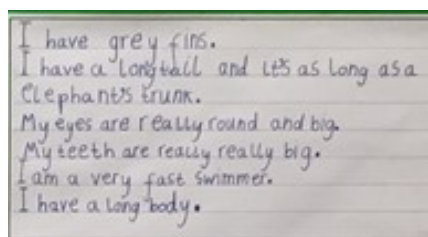 I have grey fins.
I have a long tail and it's as long as a
elephant's trunk.
My eyes are really round and big.
My teeth are really really big.
I am a very fast swimmer.
I have a long body.